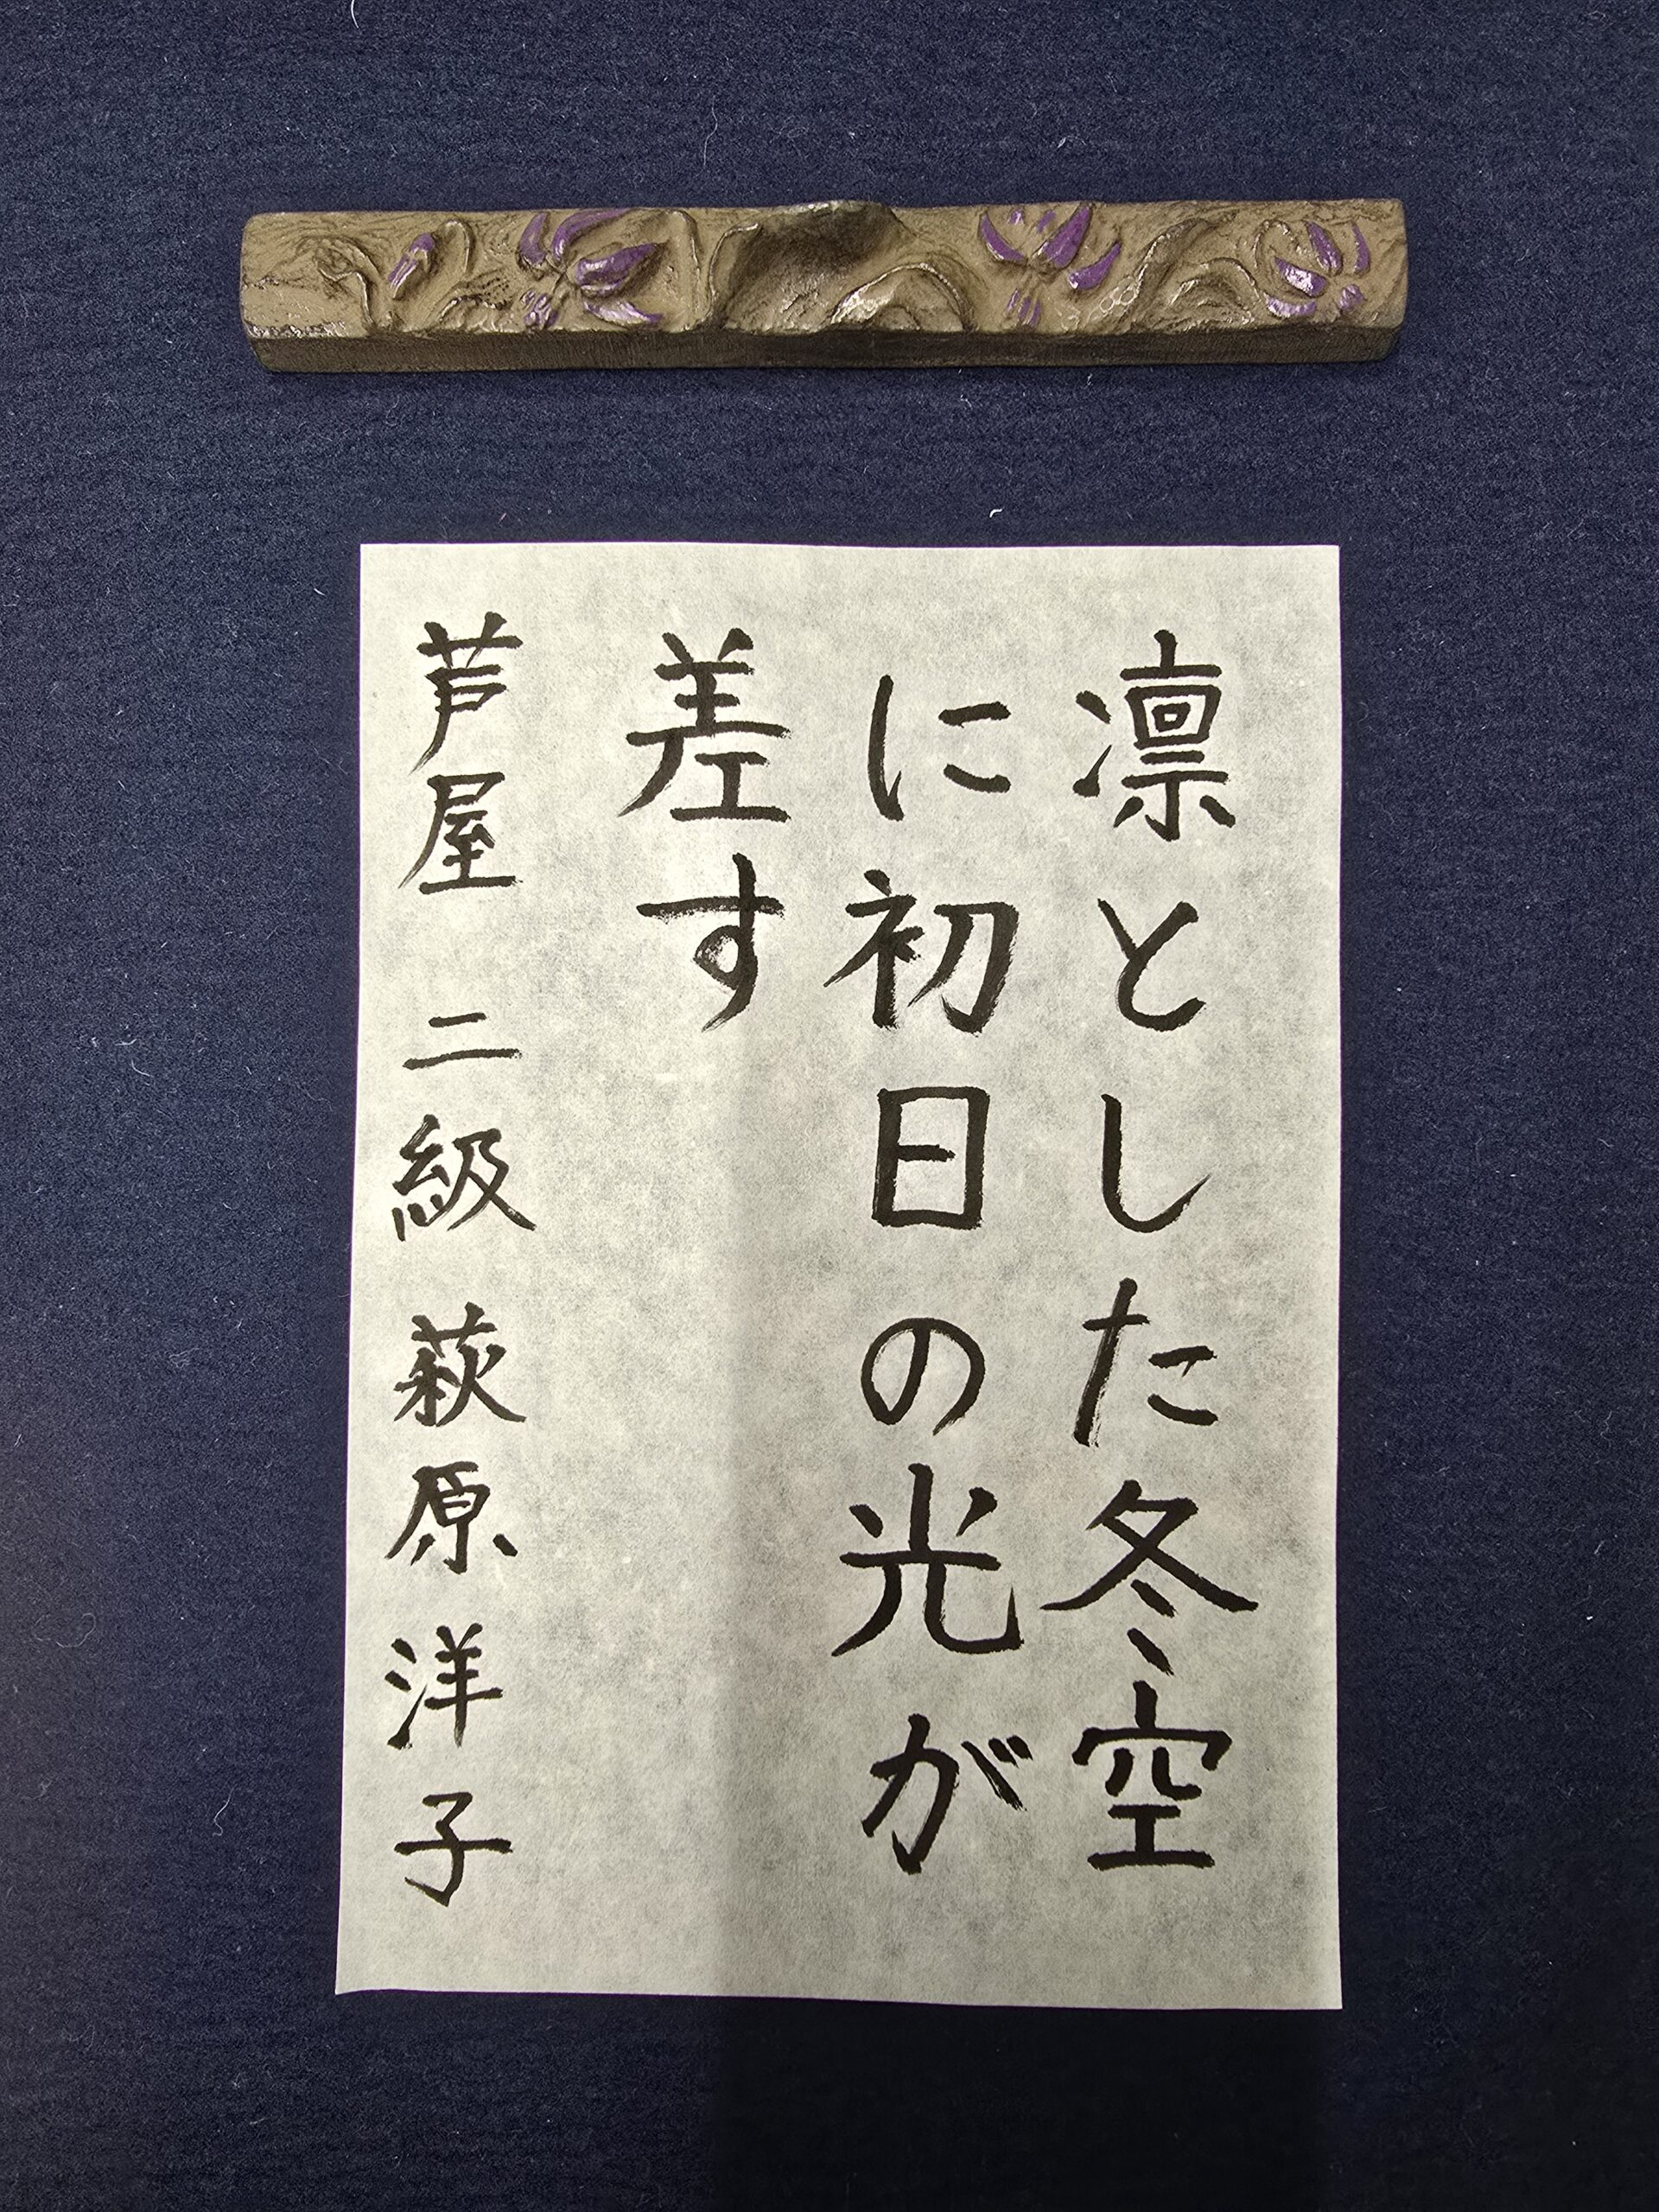 凛とした冬空
に初日の光が
差す
芦屋 二級 萩原洋子